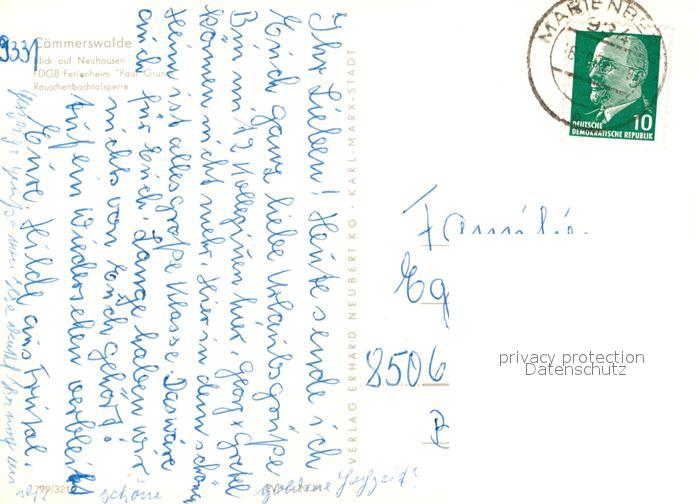 Cämmerswalde
Blick auf Neuhausen
FDGB Ferienheim "Paul Gruner"
Rauschenbachtalsperre
933
Ihr Lieben! Heute sende ich
Euch ganz liebe Urlaubsgrüße
Bin mit 2 Kolleginnen hier, Georg + Gretel
können nicht mehr. Hier in dem schönen
Heim ist alles große Klasse. Das wäre
auch für Euch. Lange haben wir
nichts von Euch gehört!
Auf ein Wiedersehen verbleibt
Eure Hilde aus Freital.
schöne
goldene Hochzeit?
VERLAG ERHARD NEUBERT KG · KARL-MARX-STADT
MARIENBE
DEUTSCHE
DEMOKRATISCHE REPUBLIK
10
Familie
Eg
8506
privacy protection
Datenschutz